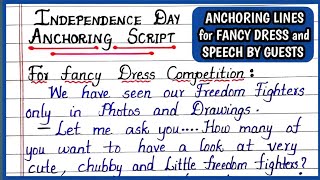 INDEPENDENCE DAY
ANCHORING SCRIPT
ANCHORING LINES
for FANCY DRESS and
SPEECH BY GUESTS
For fancy Dress Competition :
We have seen our Freedom Fighters
only in Photos and Drawings.
— Let me ask you.... How many of
you want to have a look at very
cute, chubby and Little freedom fighters?